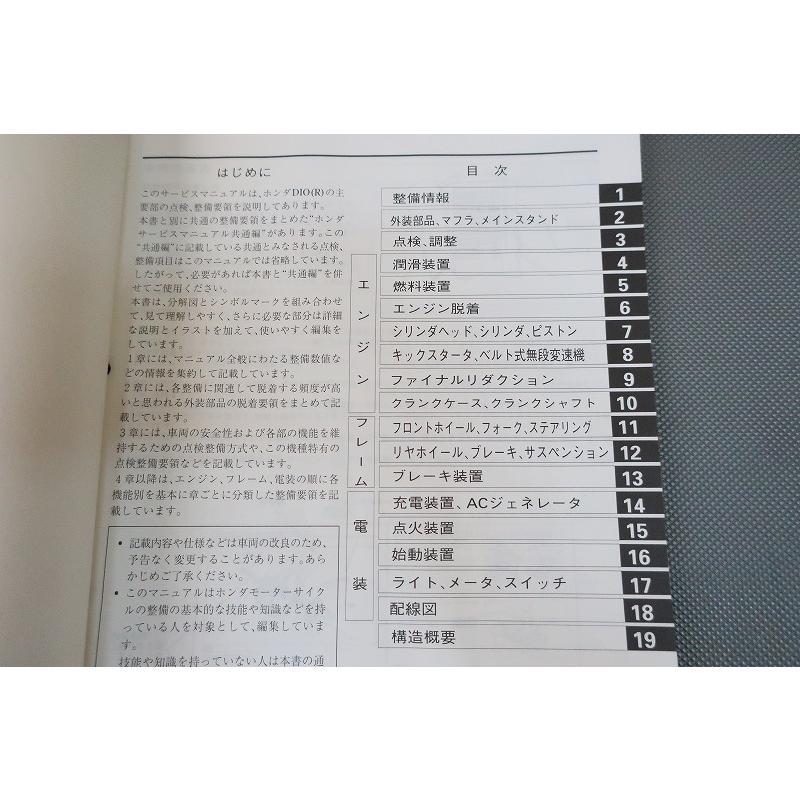 はじめに
このサービスマニュアルは、ホンダDIO(R)の主
要部の点検、整備要領を説明してあります。
本書と別に共通の整備要領をまとめた“ホンダ
サービスマニュアル共通編”があります。この
“共通編”に記載している共通とみなされる点検、
整備項目はこのマニュアルでは省略しています。
したがって、必要があれば本書と“共通編”を併
せてご使用ください。
本書は、分解図とシンボルマークを組み合わせ
て、見て理解しやすく、さらに必要な部分は詳細
な説明とイラストを加えて、使いやすく編集を
しています。
1章には、マニュアル全般にわたる整備数値な
どの情報を集約して記載しています。
2章には、各整備に関連して脱着する頻度が高
いと思われる外装部品の脱着要領をまとめて記
載しています。
3章には、車両の安全性および各部の機能を維
持するための点検整備方式や、この機種特有の
点検整備要領などを記載しています。
4章以降は、エンジン、フレーム、電装の順に各
機能別を基本に章ごとに分類した整備要領を記
載しています。
• 記載内容や仕様などは車両の改良のため、
予告なく変更することがあります。あら
かじめご了承ください。
• このマニュアルはホンダモーターサイク
ルの整備の基本的な技能や知識などを持
っている人を対象として、編集していま
す。
技能や知識を持っていない人は本書の通
目 次
整備情報 1
外装部品、マフラ、メインスタンド 2
点検、調整 3
エンジン
潤滑装置 4
燃料装置 5
エンジン脱着 6
シリンダヘッド、シリンダ、ピストン 7
キックスタータ、ベルト式無段変速機 8
ファイナルリダクション 9
クランクケース、クランクシャフト 10
フレーム
フロントホイール、フォーク、ステアリング 11
リヤホイール、ブレーキ、サスペンション 12
ブレーキ装置 13
電装
充電装置、ACジェネレータ 14
点火装置 15
始動装置 16
ライト、メータ、スイッチ 17
配線図 18
構造概要 19